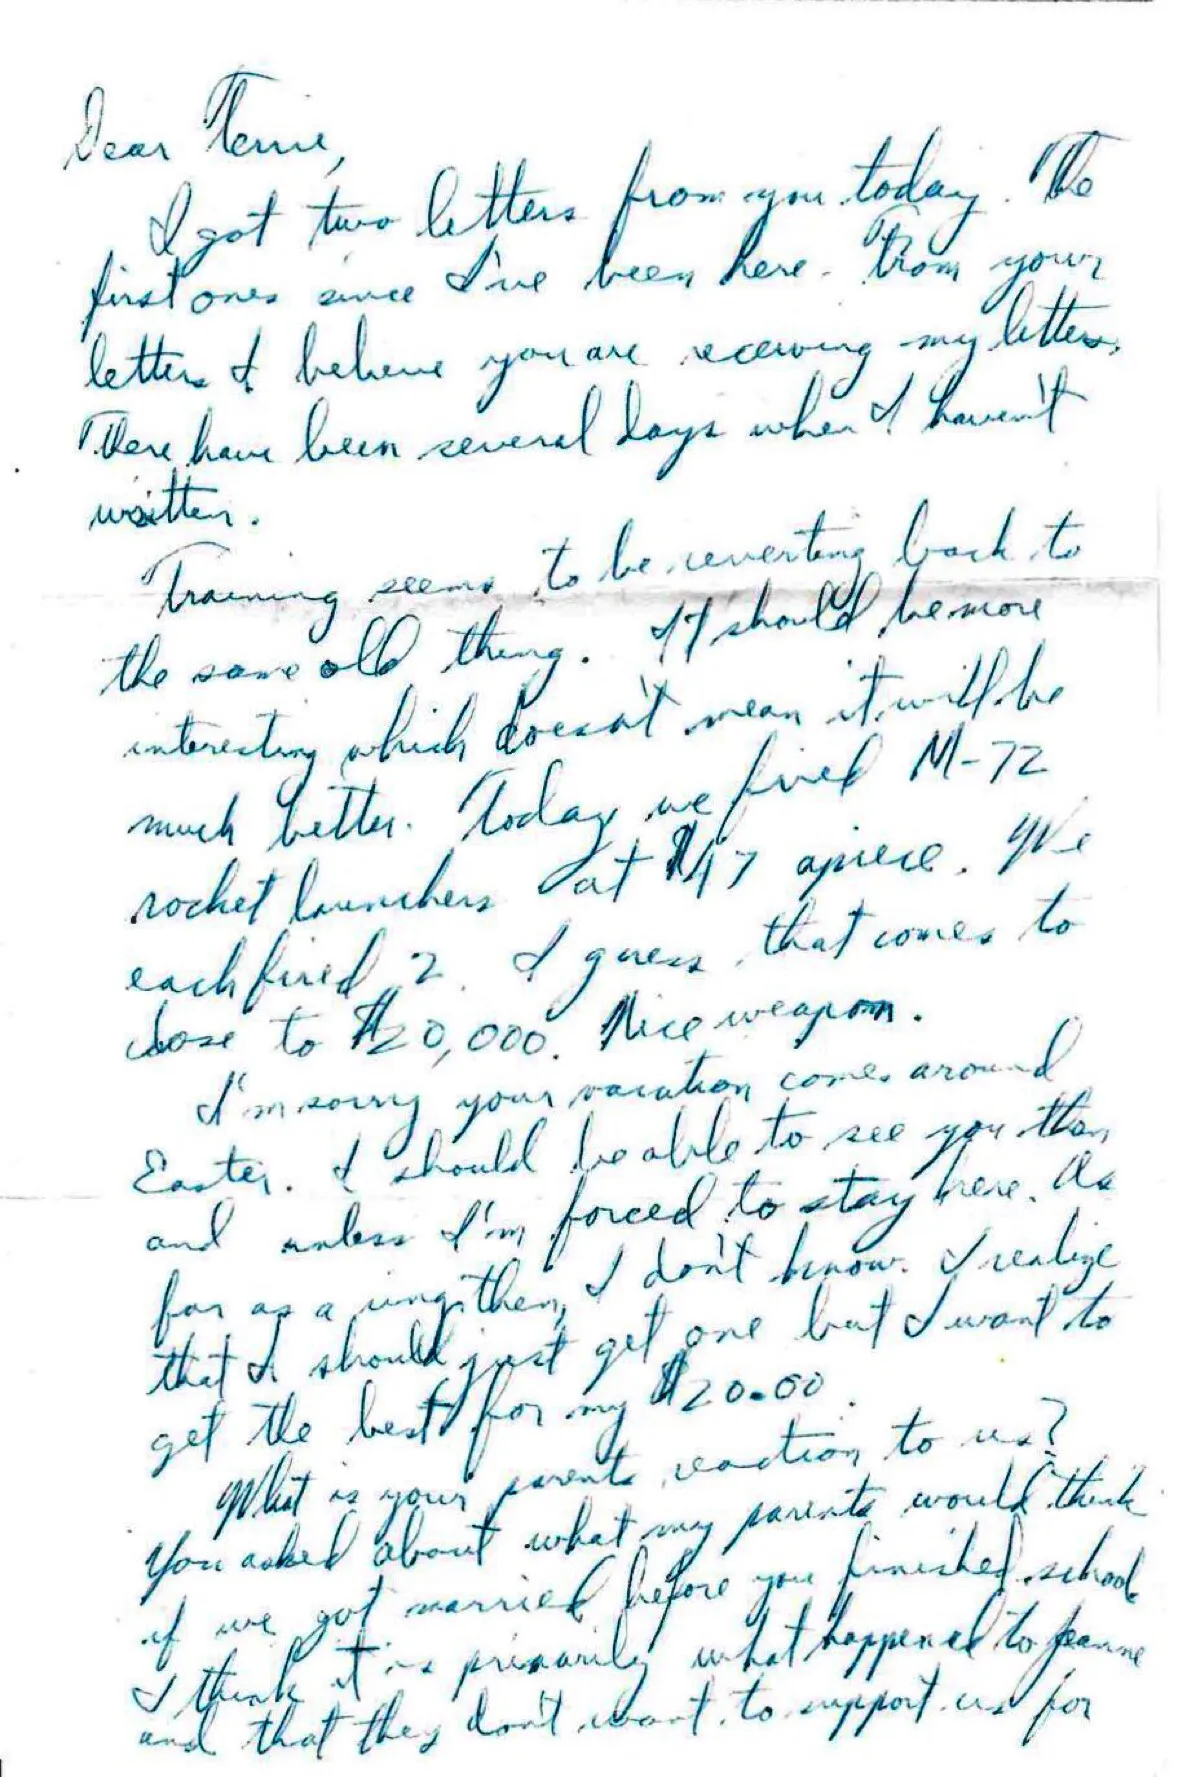 Dear Terrie,
I got two letters from you today. The
first ones since I've been here. From your
letters I believe you are receiving my letters.
There have been several days when I haven't
written.
Training seems to be reverting back to
the same old thing. It should be more
interesting which doesn't mean it will be
much better. Today we fired M-72
rocket launchers at $47 apiece. We
each fired 2. I guess that comes to
close to $20,000. Nice weapon.
I'm sorry your vacation comes around
Easter. I should be able to see you then
and unless I'm forced to stay here. As
far as a ring then, I don't know. I realize
that I should just get one but I want to
get the best for my $20.00.
What is your parents reaction to us?
You asked about what my parents would think
if we got married before you finished school
I think it is primarily what happened to Jeanne
and that they don't want to support us for